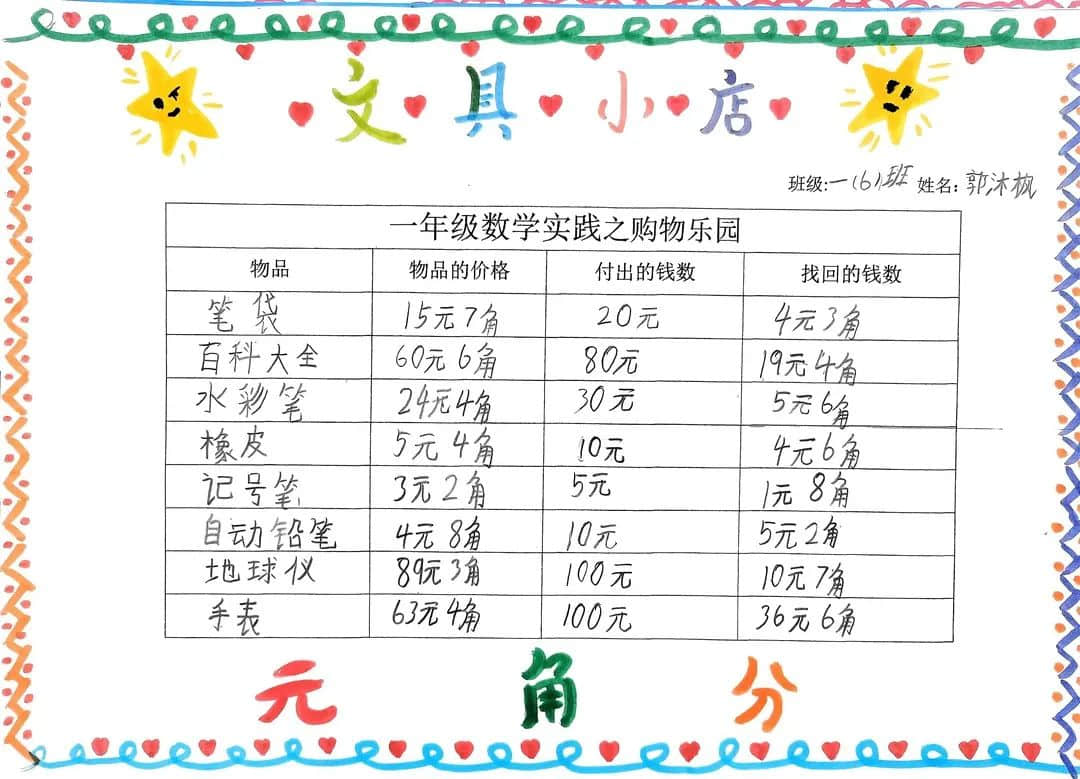 文具小店
班级:一(6)班 姓名:郭沐枫
一年级数学实践之购物乐园
物品 物品的价格 付出的钱数 找回的钱数
笔袋 15元7角 20元 4元3角
百科大全 60元6角 80元 19元4角
水彩笔 24元4角 30元 5元6角
橡皮 5元4角 10元 4元6角
记号笔 3元2角 5元 1元8角
自动铅笔 4元8角 10元 5元2角
地球仪 89元3角 100元 10元7角
手表 63元4角 100元 36元6角
元 角 分